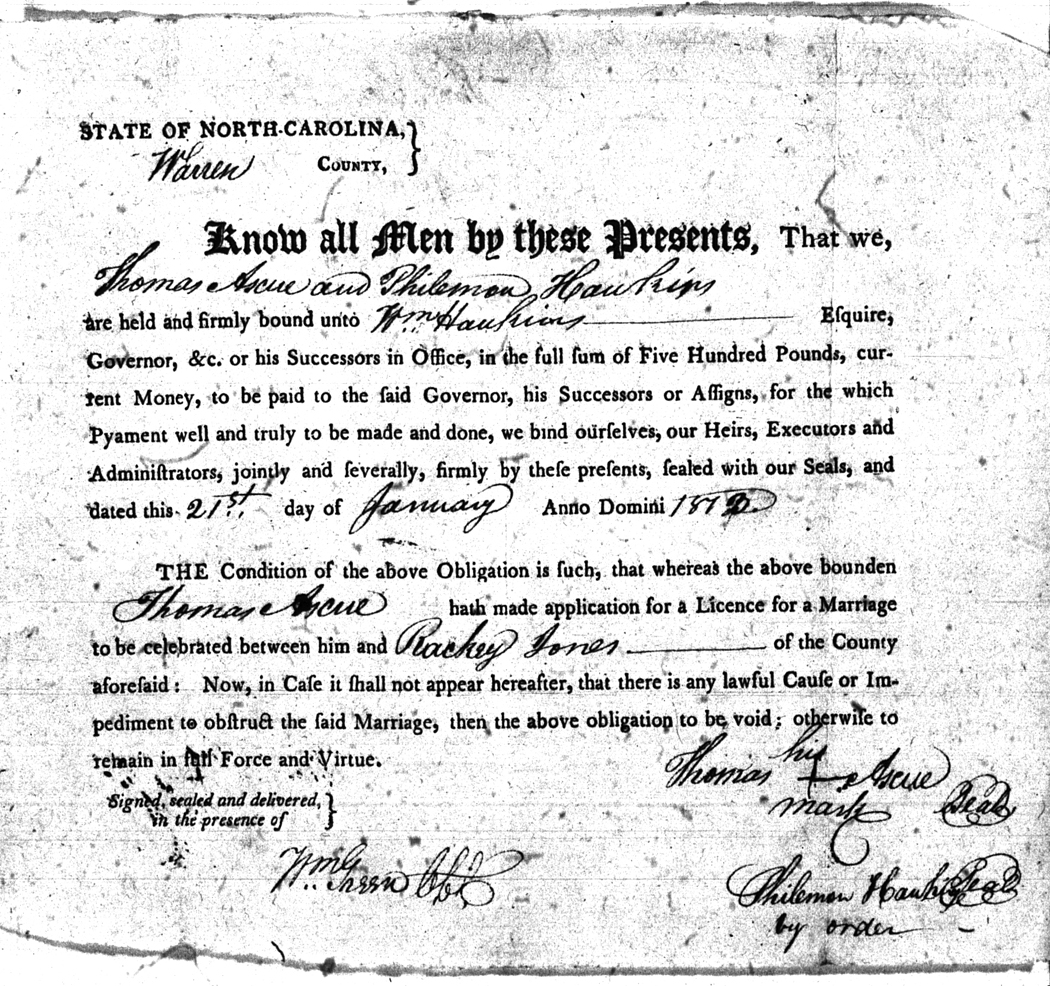 STATE OF NORTH-CAROLINA,
Warren COUNTY,
Know all Men by these Presents, That we,
Thomas Ascue and Philemon Hawkins
are held and firmly bound unto Wm. Hawkins Eſquire,
Governor, &c. or his Successors in Office, in the full ſum of Five Hundred Pounds, cur-
rent Money, to be paid to the ſaid Governor, his Successors or Aſſigns, for the which
Pyament well and truly to be made and done, we bind ourſelves, our Heirs, Executors and
Adminiſtrators, jointly and ſeverally, firmly by theſe preſents, ſealed with our Seals, and
dated this 21st. day of January Anno Domini
THE Condition of the above Obligation is ſuch, that whereas the above bounden
Thomas Ascue hath made application for a Licence for a Marriage
to be celebrated between him and Rackey Jones of the County
aforeſaid: Now, in Caſe it ſhall not appear hereafter, that there is any lawful Cauſe or Im-
pediment to obſtruct the ſaid Marriage, then the above obligation to be void; otherwiſe to
remain in full Force and Virtue.
his
Thomas + Ascue
mark Seal
Signed, sealed and delivered,
in the presence of
Wm. Green
Philemon Hawkins Seal
by order